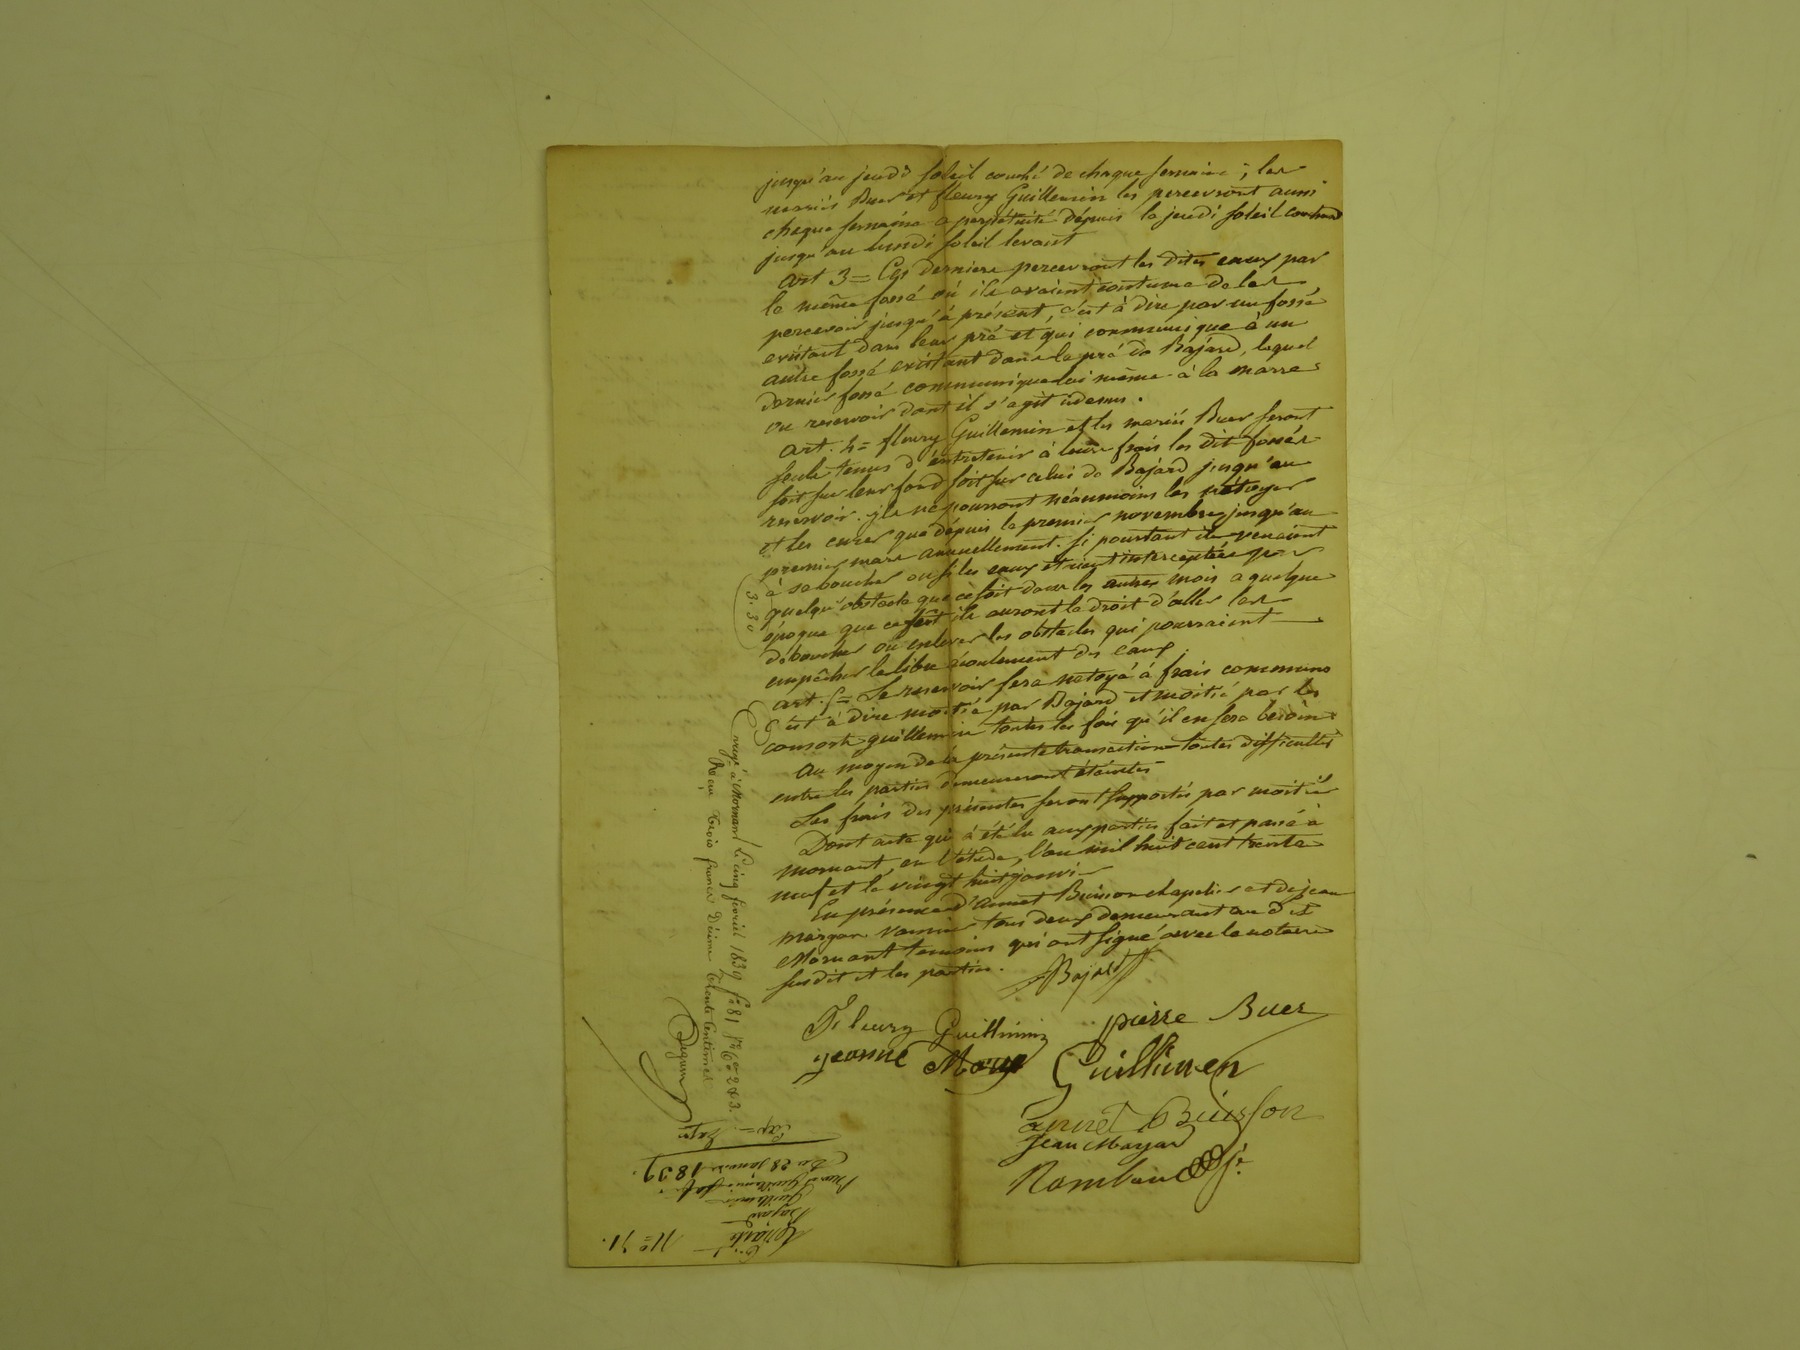 jusqu'au jeudi soleil couché de chaque semaine ; les
mariés Buer et fleury Guillemin les percevront aussi
chaque semaine a perpétuité depuis le jeudi soleil couchant
jusqu'au lundi soleil levant
art 3 = Ces derniers percevront les dites eaux par
le même fossé où ils avaient coutume de les
percevoir jusqu'à présent, c'est à dire par un fossé
existant dans leur pré et qui communique à un
autre fossé existant dans le pré de Bajard, lequel
dernier fossé communique lui même à la marre
ou reservoir dont il s'agit cidessus.
art. 4 = fleury Guillemin et les mariés Buer seront
seuls tenus d'entretenir à leurs frais les dit fossés
soit sur leur fond soit sur celui de Bajard jusqu'au
reservoir. ils ne pourront néanmoins les nétoyer
et les curer que depuis le premier novembre jusqu'au
premier mars annuellement. si pourtant ils venaient
à se boucher ou si les eaux étaient interceptées par
quelqu'obstacle que ce soit dans les autres mois a quelque
époque que ce fût ils auront le droit d'aller les
déboucher ou enlever les obstacles qui pourraient
empêcher le libre écoulement des eaux.
art. 5 = Le reservoir sera netoyé à frais communs
C'est à dire moitié par Bajard et moitié par les
consorts guillemin toutes les fois qu'il en sera besoin
Au moyen de la présente transaction toutes difficultés
entre les parties demeureront éteintes
Les frais des présentes seront supportés par moitié
Dont acte qui à été lu aux parties fait et passé à
mornant, en l'étude, l'an mil huit cent trente
neuf et le vingt huit janvier
En présence d'annet Buisson chapelier et de jean
tous deux demeurant au dit
Mornant temoins qui ont signé avec le notaire
susdit et les parties.
Bajard
Fleury Guillimin pierre Buer
jeanne Guillimen
annet Buisson
Jean
3.30
Enregé à Mornant le cinq fevrier 1839 fo 81 Ro Ces 2 & 3.
Reçu trois francs Décime trente centimes
No 71.
Bajard
Guillemin
Du 28 janvier 1839.